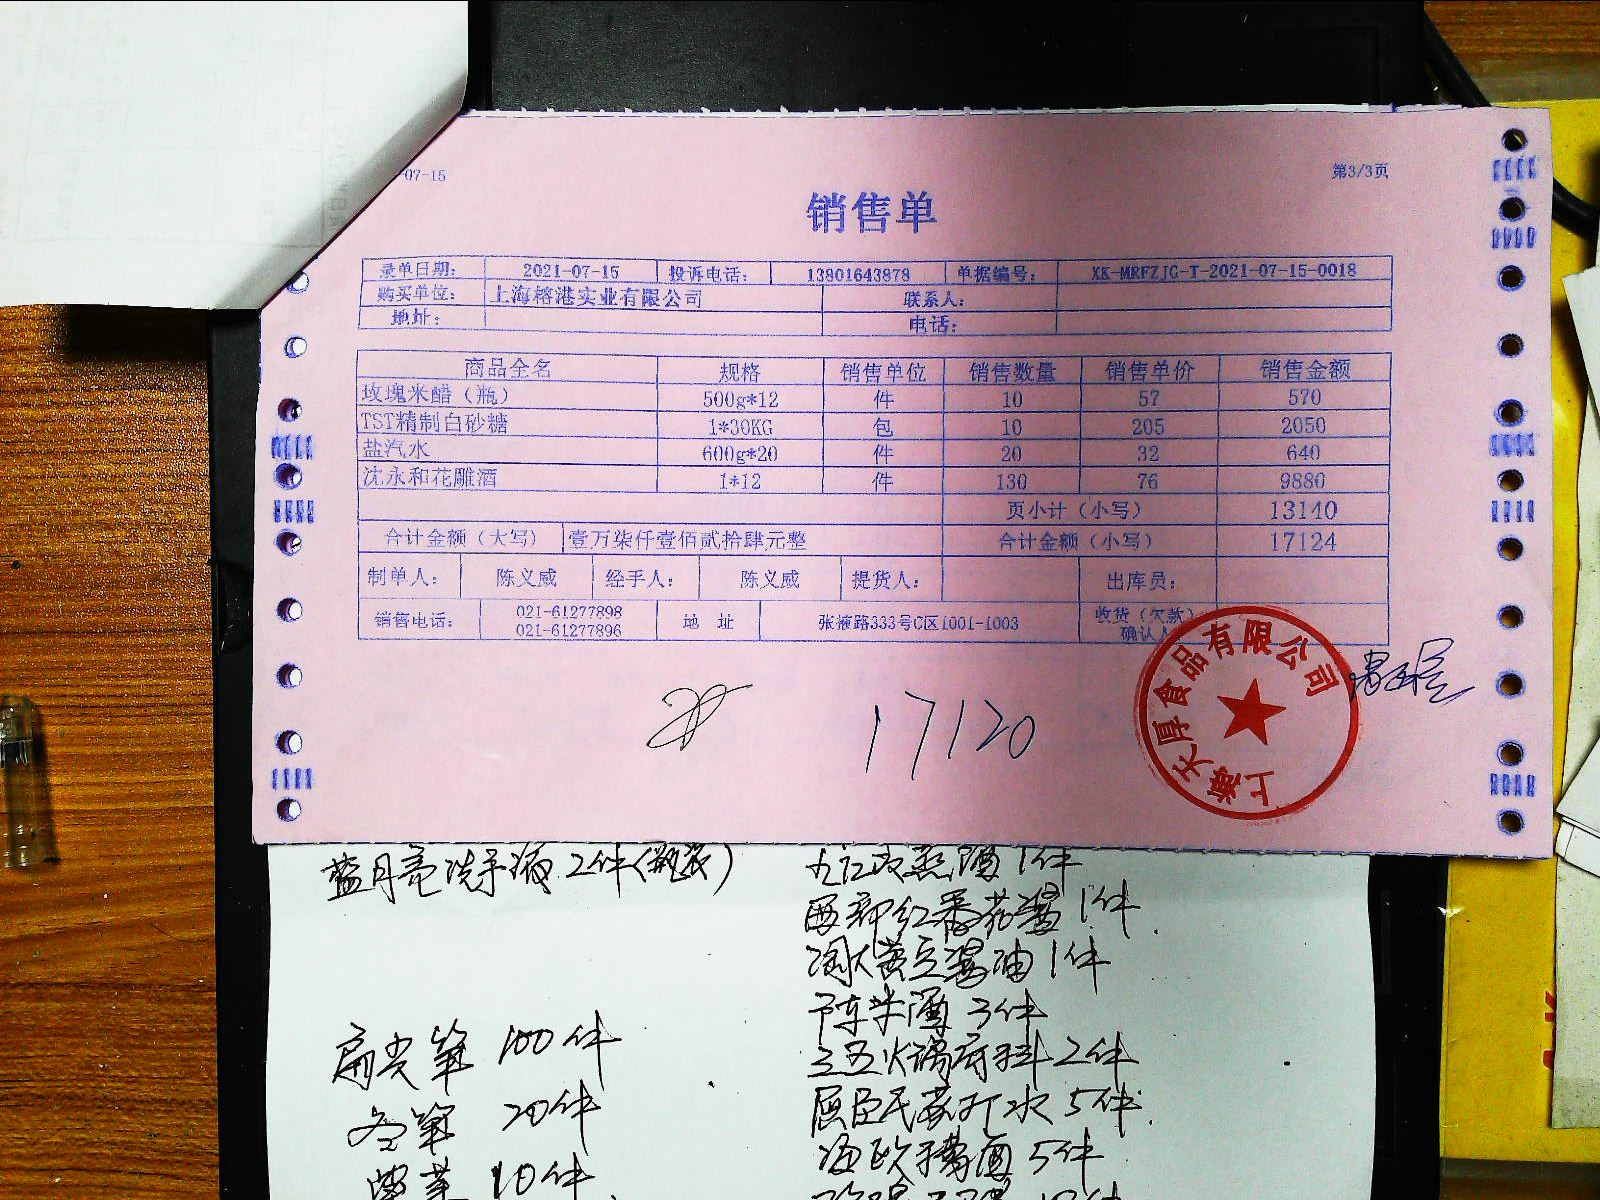 -07-15
第3/3页
销售单
录单日期: 2021-07-15 投诉电话: 13801643878 单据编号: XK-MRFZJG-T-2021-07-15-0018
购买单位: 上海榕港实业有限公司 联系人:
地址: 电话:
商品全名 规格 销售单位 销售数量 销售单价 销售金额
玫瑰米醋（瓶） 500g*12 件 10 57 570
TST精制白砂糖 1*30KG 包 10 205 2050
盐汽水 600g*20 件 20 32 640
沈永和花雕酒 1*12 件 130 76 9880
页小计（小写） 13140
合计金额（大写） 壹万柒仟壹佰贰拾肆元整 合计金额（小写） 17124
制单人: 陈义威 经手人: 陈义威 提货人: 出库员:
销售电话: 021-61277898 021-61277896 地 址 张掖路333号C区1001-1003 收货（欠款）确认人
上海天厚食品有限公司
17120
蓝月亮洗手液 2件(瓶装)
九江双蒸酒 1件
西部红番茄酱 1件
淘大黄豆酱油 1件
3件
扁尖笋 100件
2件
冬笋 20件
5件
5件
紫菜 10件